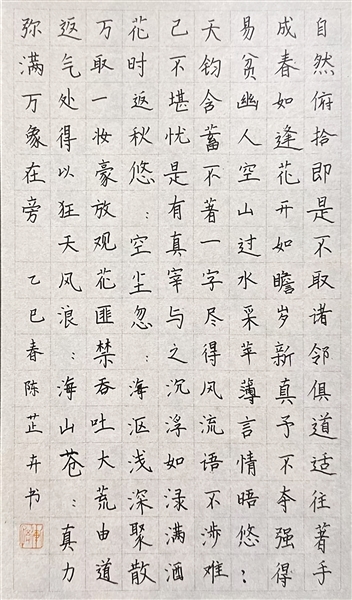 自然俯拾即是不取诸邻俱道适往著手
成春如逢花开如瞻岁新真予不夺强得
易贫幽人空山过水采苹薄言情晤悠:
天钧含蓄不著一字尽得风流语不涉难
己不堪忧是有真宰与之沉浮如渌满酒
花时返秋悠:空尘忽:海沤浅深聚散
万取一妆豪放观花匪禁吞吐大荒由道
返气处得以狂天风浪:海山苍:真力
弥满万象在旁 乙巳春陈芷卉书